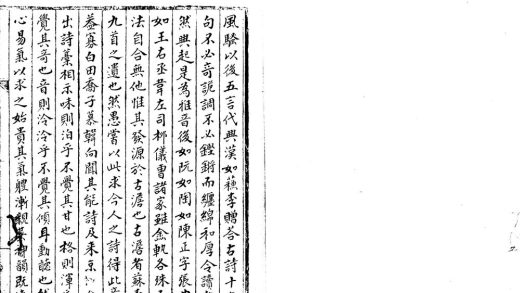 風騷以後五言代興漢如蘇李贈荅古詩十
句不必奇詭調不必鏗鏘而纏綿和厚令讀
然興起是為雅音後如阮如陶如陳正字張
如王右丞韋左司柳儀曹諸家雖金軌各殊
法自合無他惟其發源於古澹也古澹者蘇
九首之遺也然愚嘗以此求今人之詩得此
蓋寡白田喬子慕韓向聞其能詩及来京
出詩藁相示味則泊乎不覺其甘也格則渾
覺其奇也音則泠泠乎不覺其傾耳動聽也
心易氣以求之始貴其氣體漸親韻既